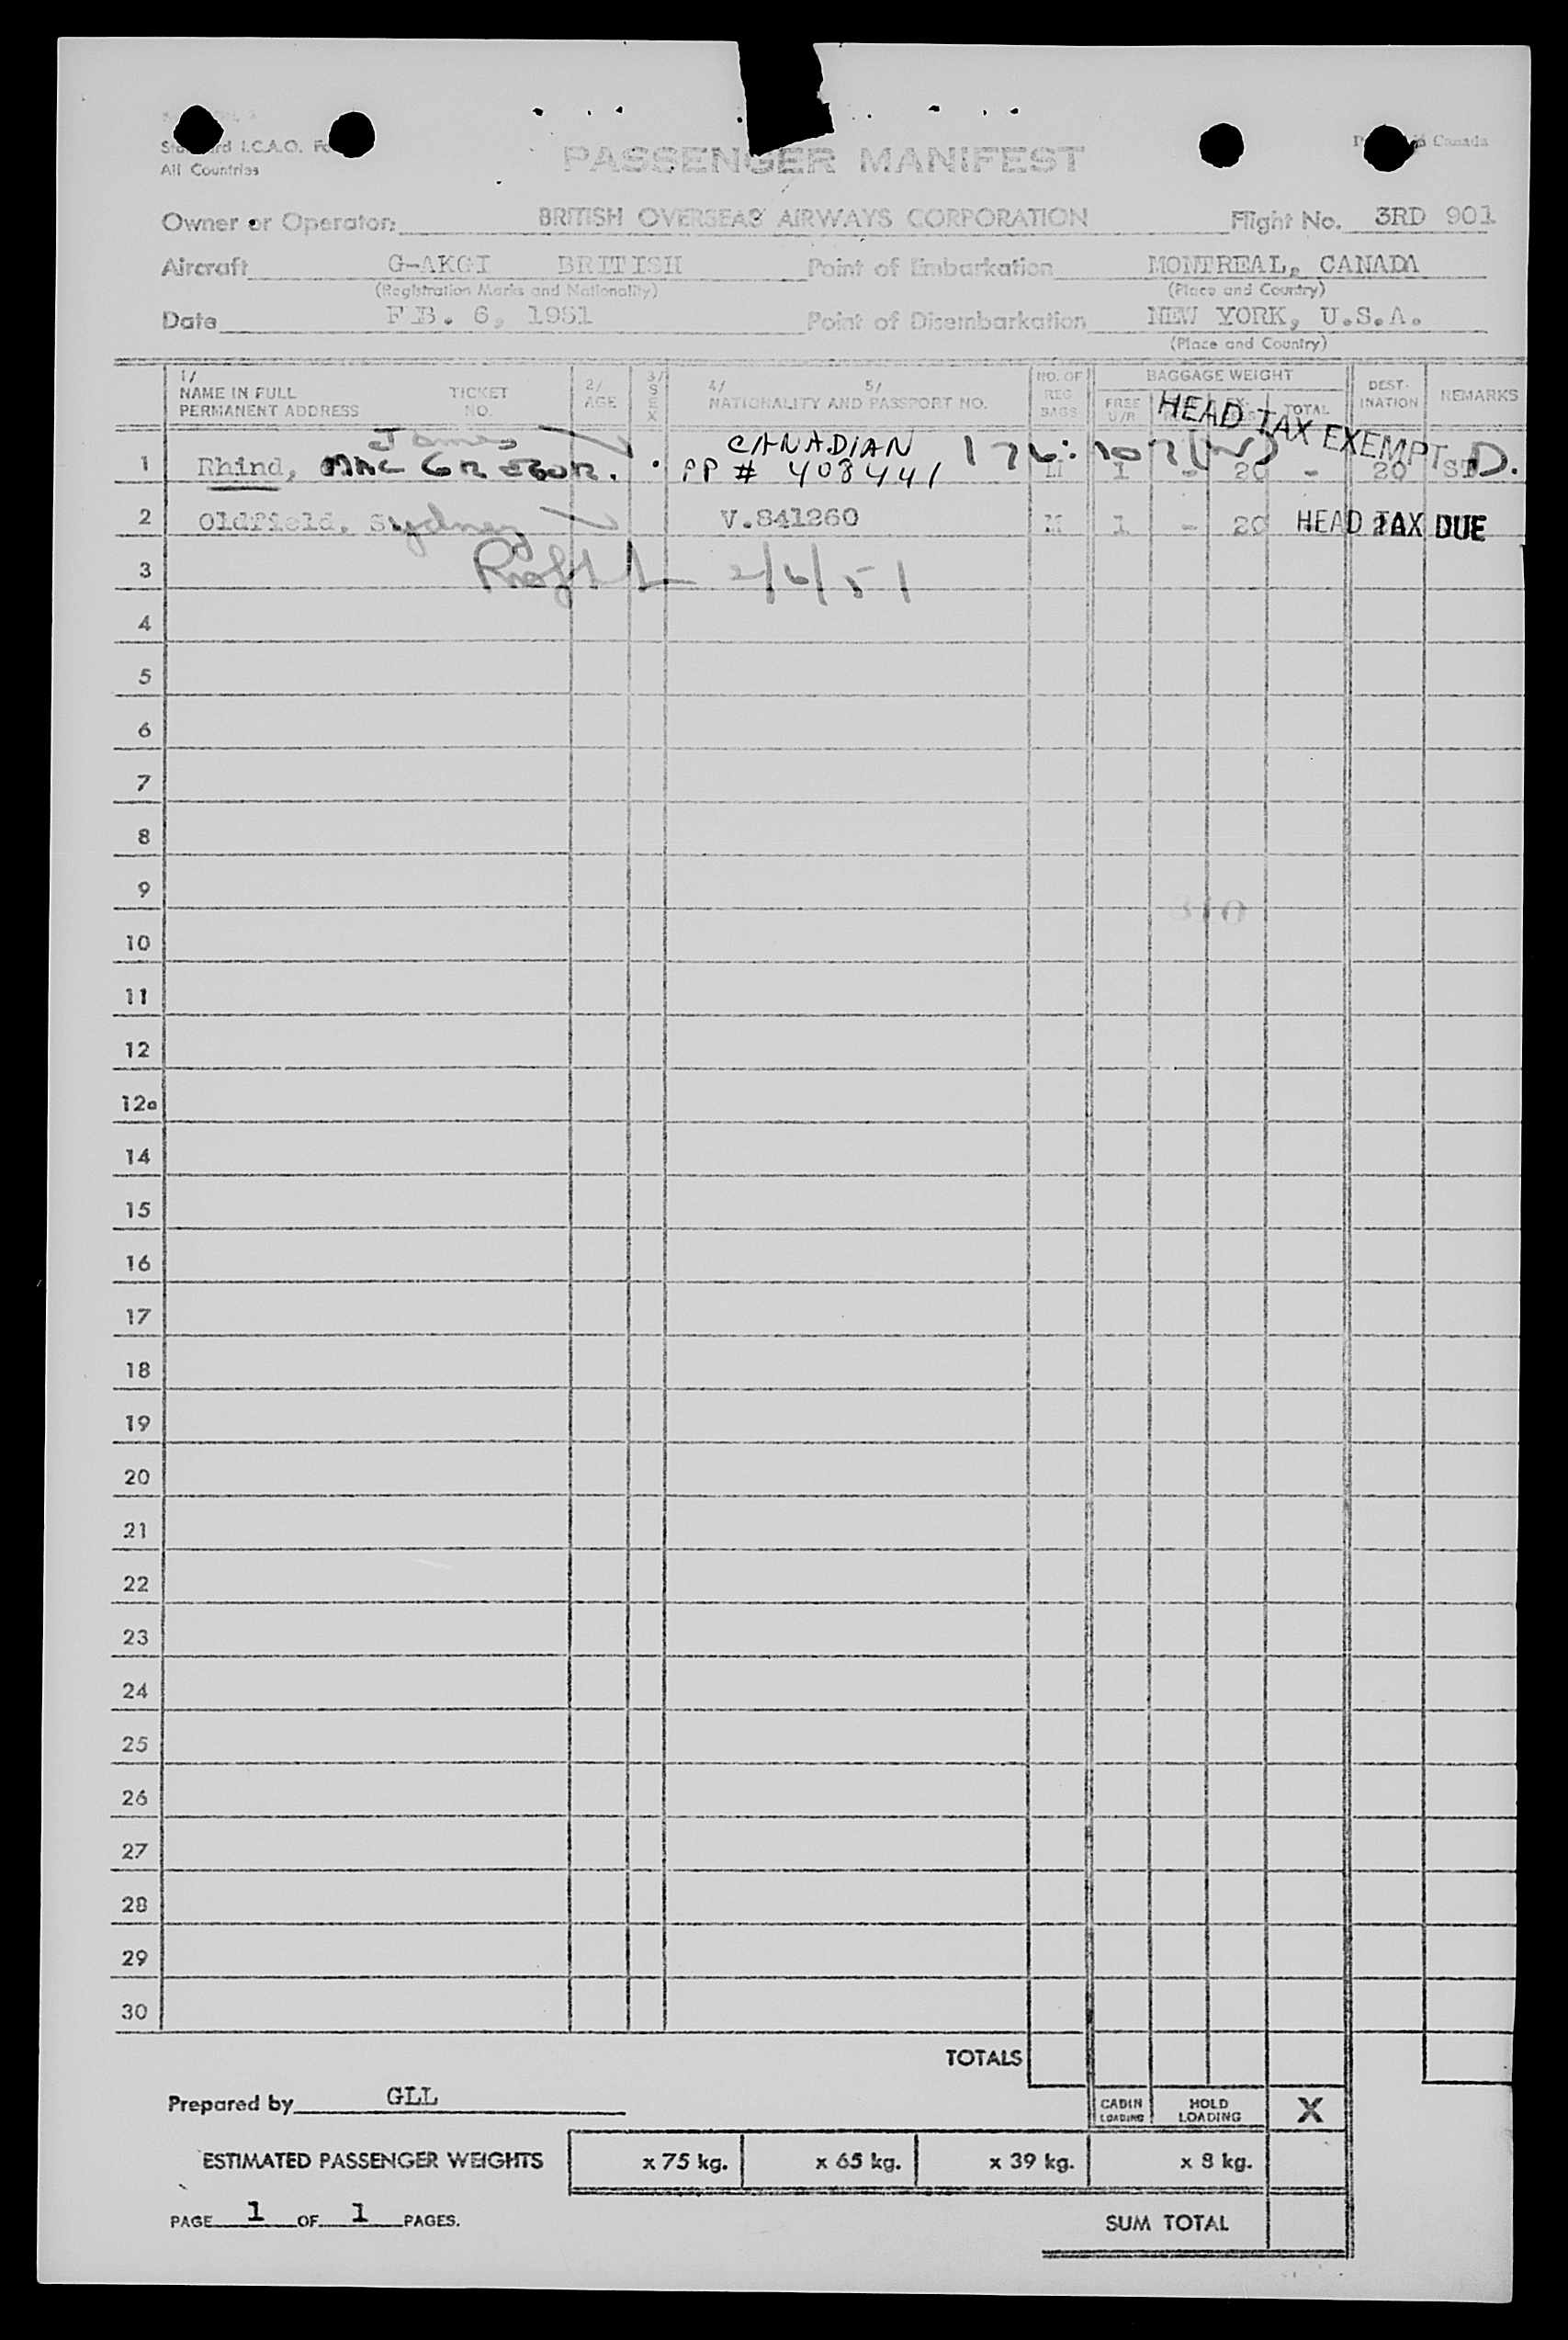 I.C.A.O.
All Countries
Canada
PASSENGER MANIFEST
Owner or Operator: BRITISH OVERSEAS AIRWAYS CORPORATION Flight No. 3RD 901
Aircraft G-AKGI BRITISH Point of Embarkation MONTREAL, CANADA
(Registration Marks and Nationality) (Place and Country)
Date F B. 6, 1951 Point of Disembarkation NEW YORK, U.S.A.
(Place and Country)
1/ NAME IN FULL PERMANENT ADDRESS TICKET NO. 2/ AGE 3/ SEX 4/ 5/ NATIONALITY AND PASSPORT NO. NO. OF REG BAGS BAGGAGE WEIGHT FREE U/R TOTAL DEST-INATION REMARKS
HEAD TAX EXEMPT
James CANADIAN
1 Rhind, MAC GREGOR. PP # 408441 M 1 - 20 - 20 D.
2 Oldfield, Sydney V.841260 M 1 - 20 HEAD TAX DUE
3 2/6/51
4
5
6
7
8
9
10
11
12
12a
14
15
16
17
18
19
20
21
22
23
24
25
26
27
28
29
30
TOTALS
Prepared by GLL CABIN LOADING HOLD LOADING X
ESTIMATED PASSENGER WEIGHTS x 75 kg. x 65 kg. x 39 kg. x 8 kg.
PAGE 1 OF 1 PAGES. SUM TOTAL